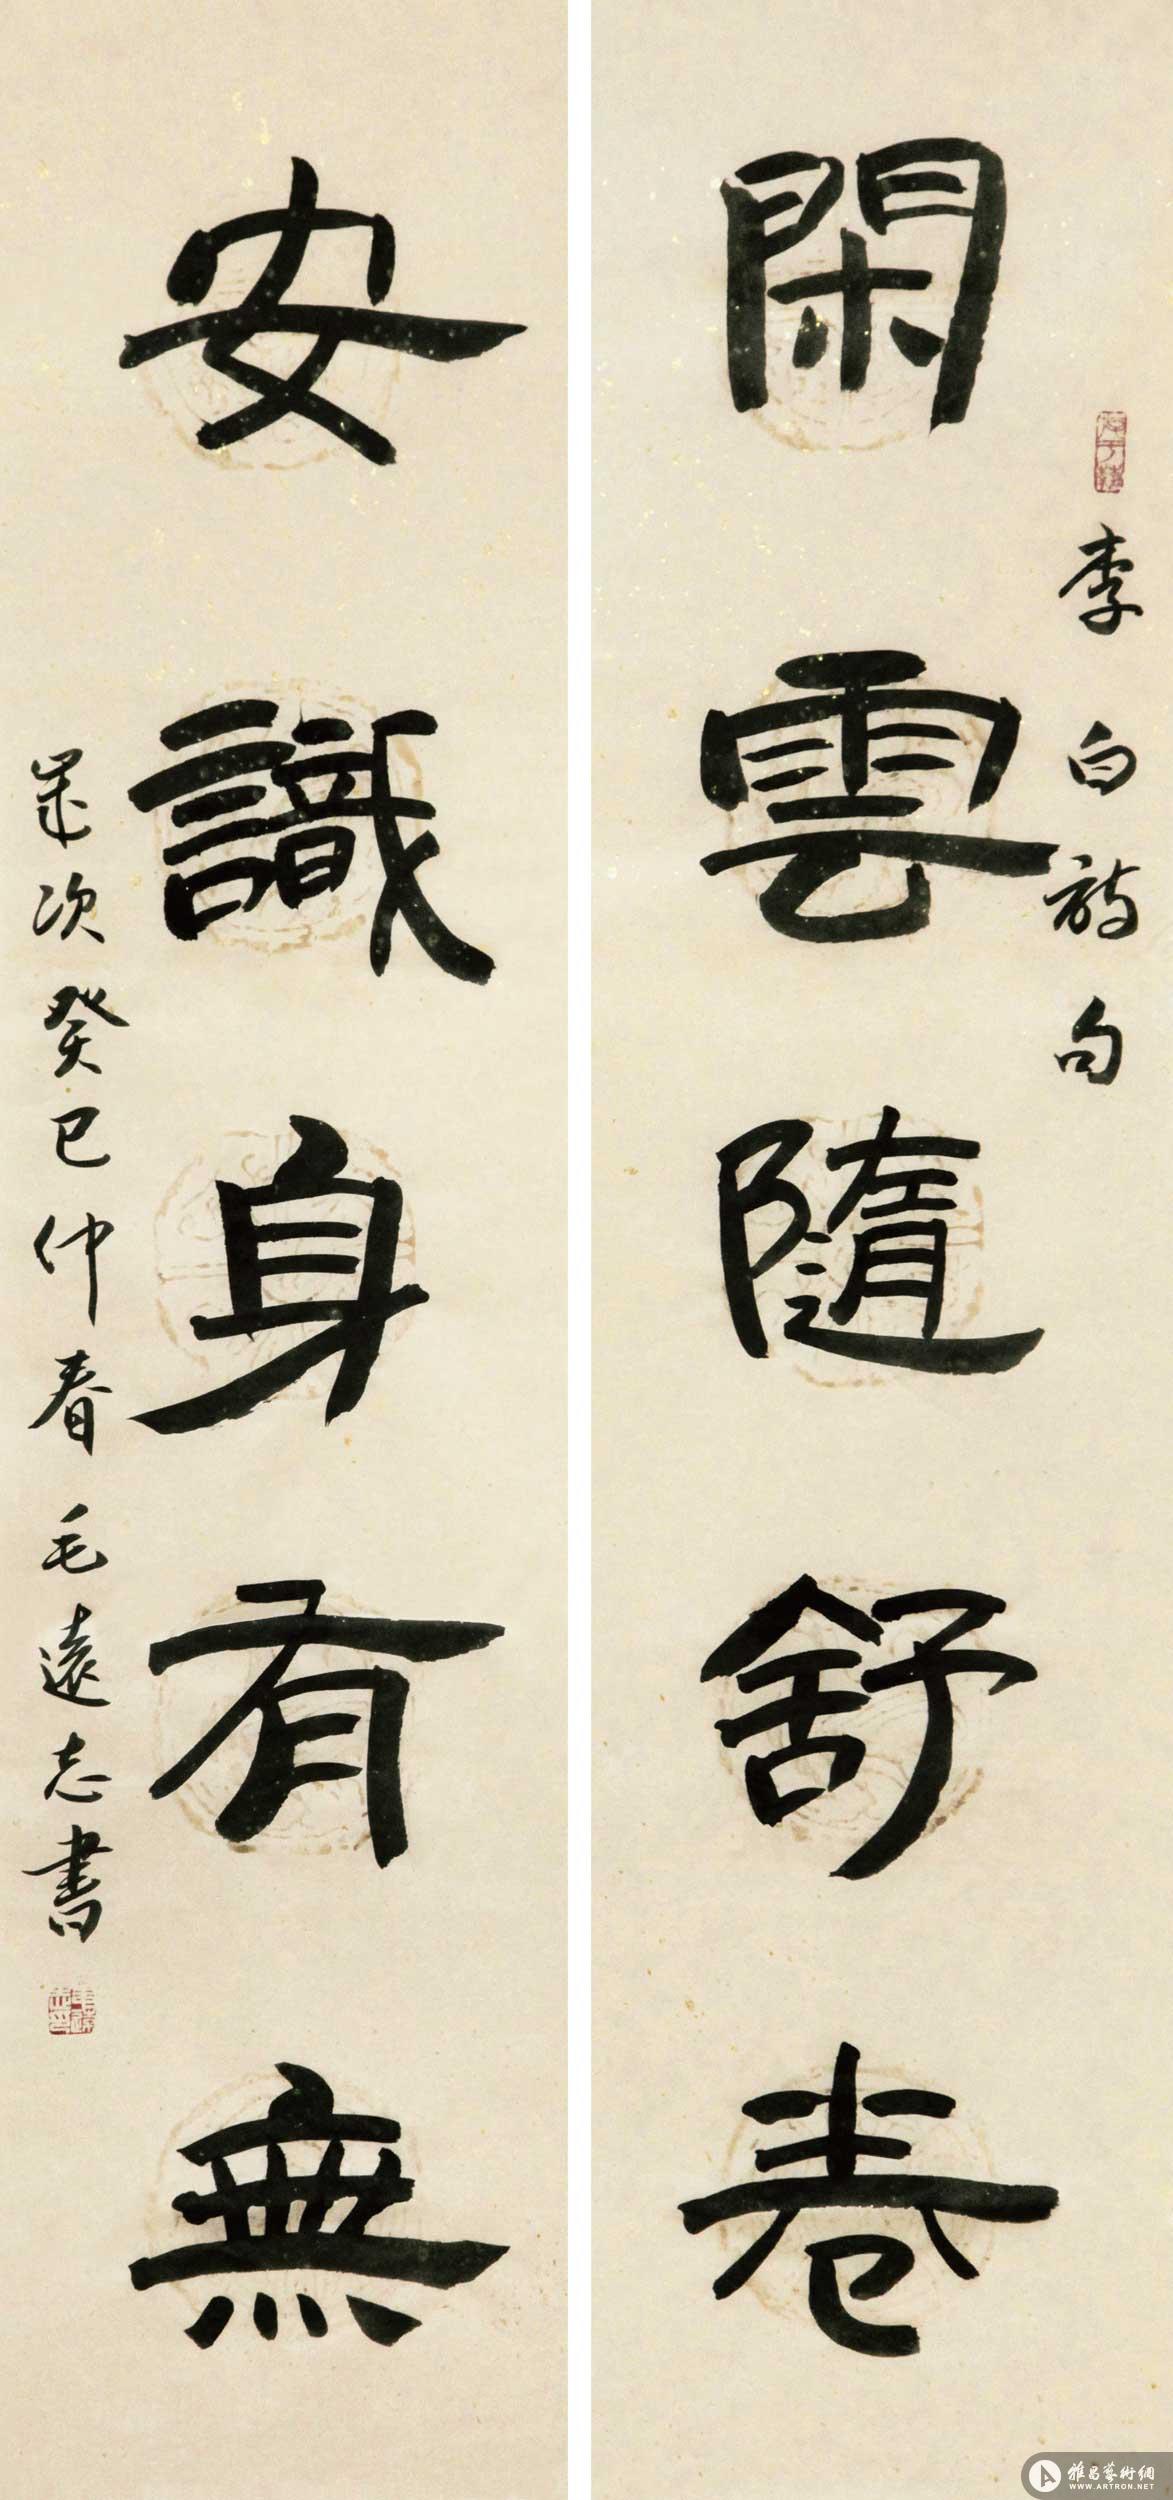 李白詩句
閑雲隨舒卷
安識身有無
歲次癸巳仲春毛遠志書
雅昌藝術網
WWW.ARTRON.NET